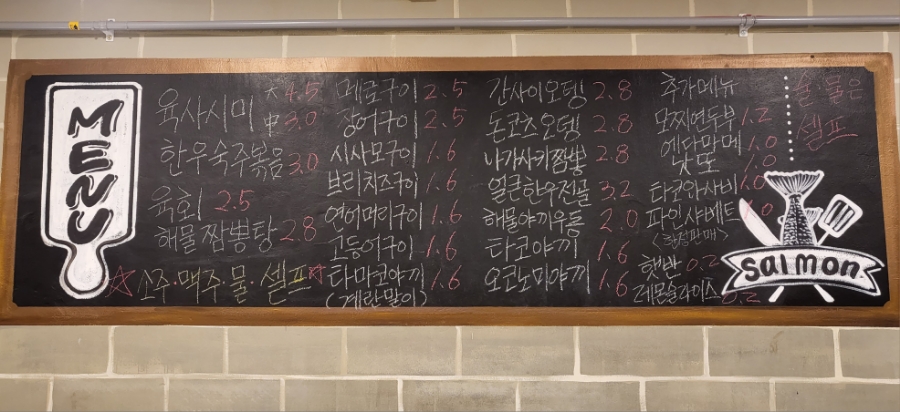 MENU
육사시미 大 4.5
中 3.0
한우숙주볶음 3.0
육회 2.5
해물짬뽕탕 2.8
☆소주·맥주·물·셀프☆
메로구이 2.5
장어구이 2.5
시사모구이 1.6
브리치즈구이 1.6
연어머리구이 1.6
고등어구이 1.6
타마코야끼 1.6
(계란말이)
간사이오뎅 2.8
돈코츠오뎅 2.8
나가사키짬뽕 2.8
얼큰한우전골 3.2
해물야끼우동 2.0
타코야끼 1.6
오코노미야끼 1.6
추가메뉴
모찌연두부 1.2
에다마메 1.0
낫또 1.0
타코와사비 1.0
파인샤베트 1.0
<한정판매>
햇반 0.2
레몬슬라이스 0.2
술·물은
셀프
salmon